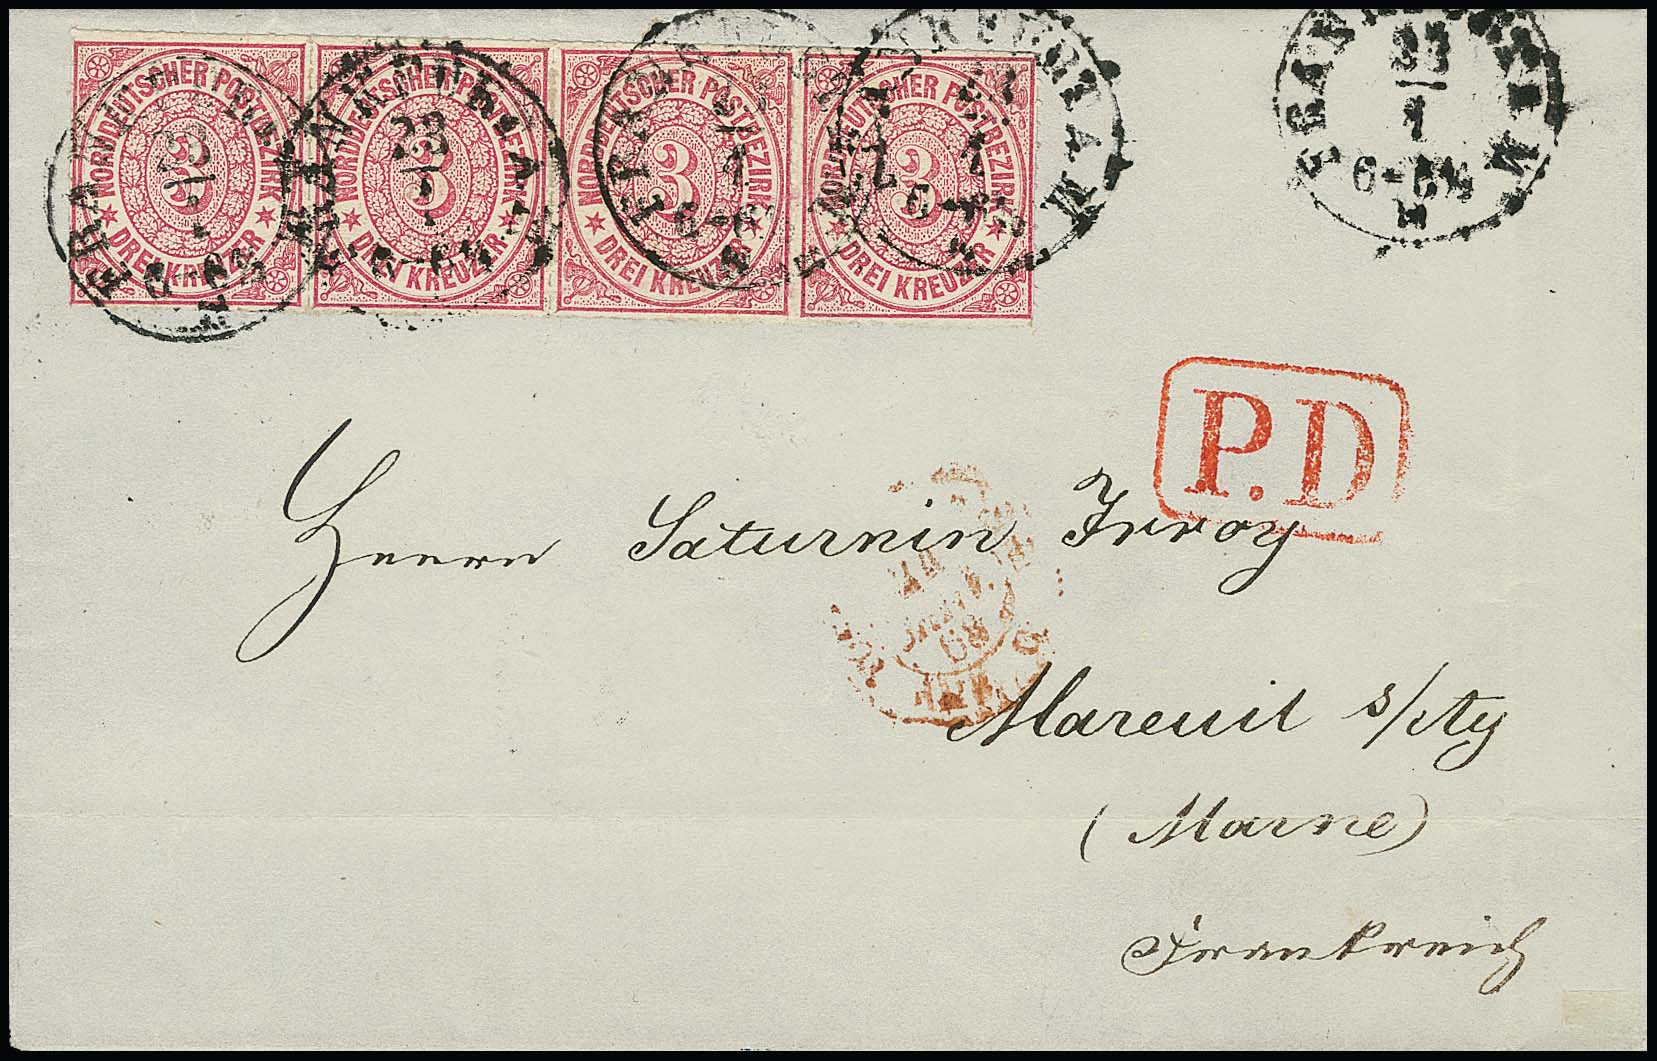 NORDDEUTSCHER POSTBEZIRK
3
DREI KREUZER
NORDDEUTSCHER POSTBEZIRK
3
DREI KREUZER
NORDDEUTSCHER POSTBEZIRK
3
DREI KREUZER
NORDDEUTSCHER POSTBEZIRK
3
DREI KREUZER
23
1
P.D
Herrn Saturnin Irroy
Mareuil s/Ay
(Marne)
Frankreich